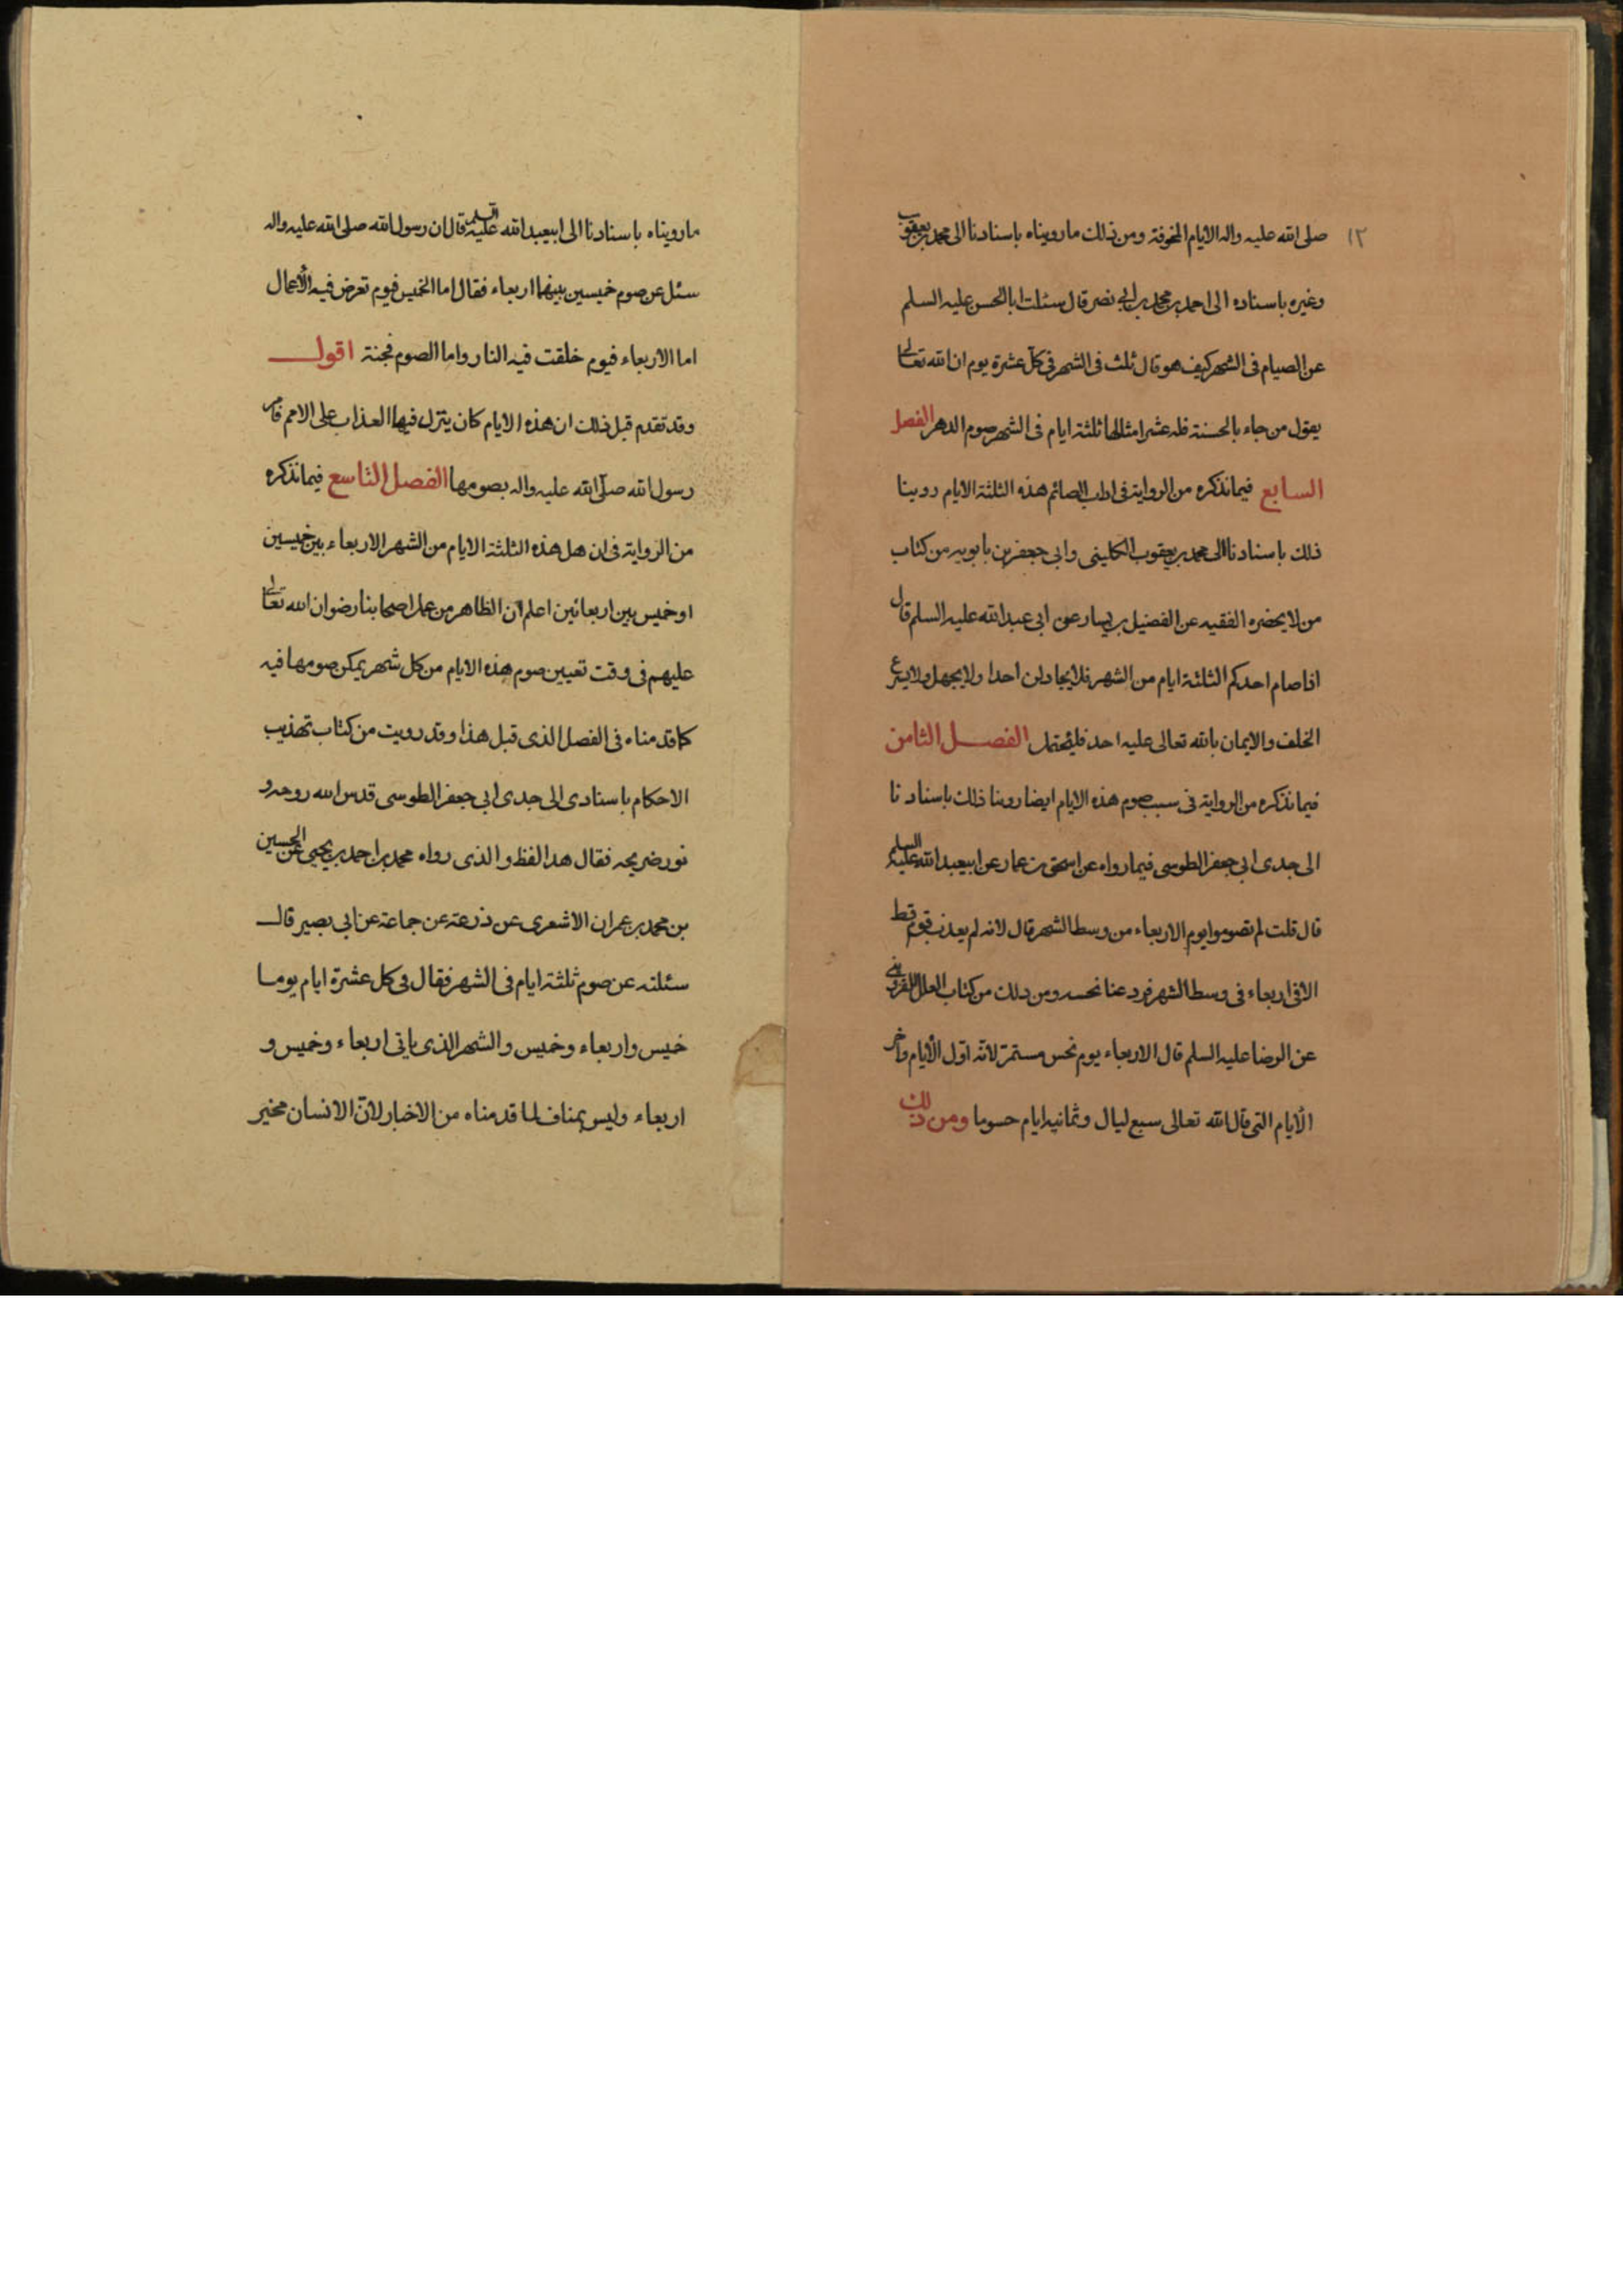 ١٢
صلى الله عليه واله الايام المخوفة ومن ذلك ما رويناه باسنادنا الى محمد بن يعقوب
وغيره باسناده الى احمد بن محمد بن ابي نصر قال سئلت ابا الحسن عليه السلم
عن الصيام في الشهر كيف هو قال ثلث في الشهر في كل عشرة يوم ان الله تعالى
يقول من جاء بالحسنة فله عشر امثالها ثلثة ايام في الشهر صوم الدهر الفصل
السابع فيما نذكره من الرواية في اداب الصائم هذه الثلثة الايام روينا
ذلك باسنادنا الى محمد بن يعقوب الكليني وابي جعفر بن بابويه من كتاب
من لا يحضره الفقيه عن الفضيل بن يسار عن ابي عبد الله عليه السلم قال
اذا صام احدكم الثلثة ايام من الشهر فلا يجادلن احدا ولا يجهل ولا يسرع
الحلف والايمان بالله تعالى عليه احد فليحتمل الفصل الثامن
فيما نذكره من الرواية في سبب صوم هذه الايام ايضا روينا ذلك باسنادنا
الى جدي ابي جعفر الطوسي فيما رواه عن اسحق بن عمار عن ابيعبد الله عليه السلم
قال قلت لم تصوموا يوم الاربعاء من وسط الشهر قال لانه لم يعذب قوم قط
الا في اربعاء في وسط الشهر فرد عنا نحسه ومن ذلك من كتاب العلل للقزويني
عن الرضا عليه السلم قال الاربعاء يوم نحس مستمر لانه اول الأيام واخر
الأيام التي قال الله تعالى سبع ليال وثمانية ايام حسوما ومن ذلك
ما رويناه باسنادنا الى ابيعبد الله عليه السلم قال ان رسول الله صلى الله عليه واله
سئل عن صوم خميسين بينهما اربعاء فقال اما الخميس فيوم تعرض فيه الأعمال
اما الاربعاء فيوم خلقت فيه النار واما الصوم فجنة اقول
وقد تقدم قبل ذلك ان هذه الايام كان ينزل فيها العذاب على الامم فامر
رسول الله صلى الله عليه واله بصومها الفصل التاسع فيما نذكره
من الرواية في ان هل هذه الثلثة الايام من الشهر الاربعاء بين خميسين
او خميس بين اربعائين اعلم ان الظاهر من عمل اصحابنا رضوان الله تعالى
عليهم في وقت تعيين صوم هذه الايام من كل شهر يمكن صومها فيه
كما قدمناه في الفصل الذي قبل هذا وقد رويت من كتاب تهذيب
الاحكام باسنادي الى جدي ابي جعفر الطوسي قدس الله روحه و
نور ضريحه فقال هدا لفظ والذي رواه محمد بن احمد بن يحيى عن الحسين
بن محمد بن عمران الاشعري عن ذرعة عن جماعة عن ابي بصير قال
سئلته عن صوم ثلثة ايام في الشهر فقال في كل عشرة ايام يوما
خميس واربعاء وخميس والشهر الذي ياتي اربعاء وخميس و
اربعاء وليس بمناف لما قدمناه من الاخبار لان الانسان مخير